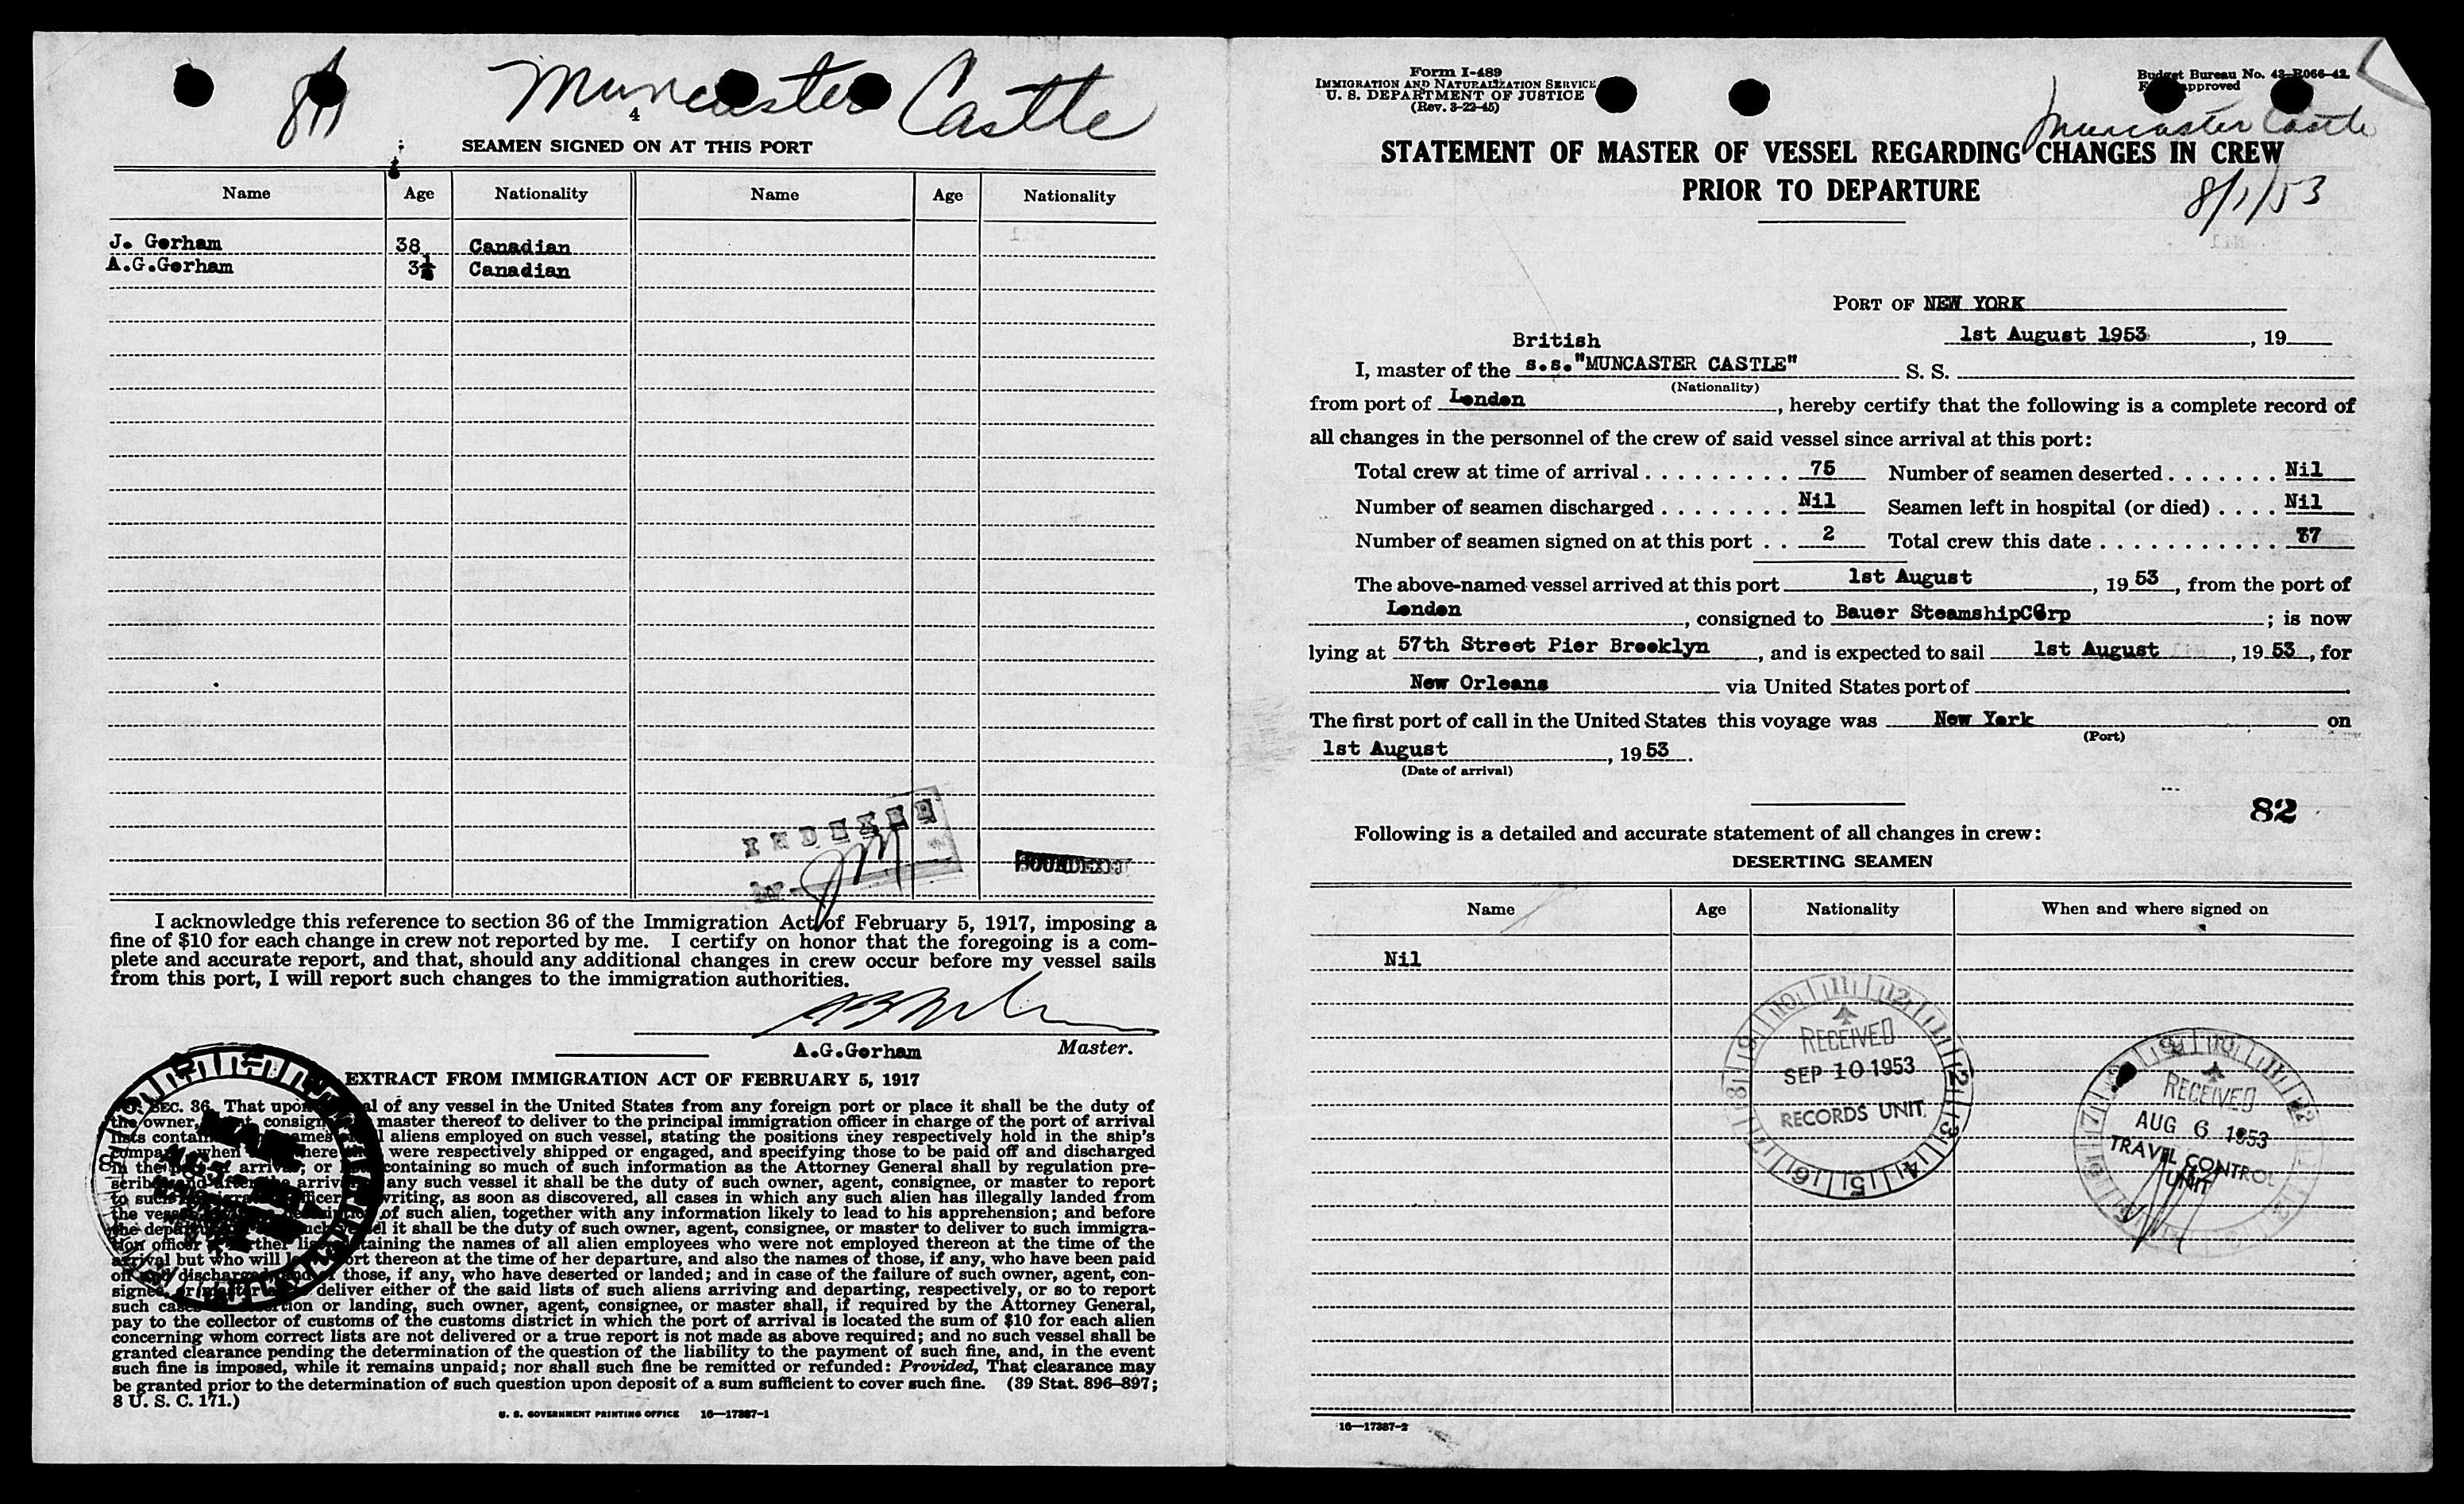 Muncaster Castle
4
SEAMEN SIGNED ON AT THIS PORT
Name Age Nationality Name Age Nationality
J. Gorham 38 Canadian
A.G.Gorham Canadian
INDEXED
I acknowledge this reference to section 36 of the Immigration Act of February 5, 1917, imposing a
fine of $10 for each change in crew not reported by me. I certify on honor that the foregoing is a com-
plete and accurate report, and that, should any additional changes in crew occur before my vessel sails
from this port, I will report such changes to the immigration authorities.
A.G.Gorham Master.
EXTRACT FROM IMMIGRATION ACT OF FEBRUARY 5, 1917
SEC. 36. That upon al of any vessel in the United States from any foreign port or place it shall be the duty of
the owner, consign master thereof to deliver to the principal immigration officer in charge of the port of arrival
lists contain ames l aliens employed on such vessel, stating the positions they respectively hold in the ship's
company, when here were respectively shipped or engaged, and specifying those to be paid off and discharged
in the of arrival; or containing so much of such information as the Attorney General shall by regulation pre-
scribe and after the arriv any such vessel it shall be the duty of such owner, agent, consignee, or master to report
to such fficer writing, as soon as discovered, all cases in which any such alien has illegally landed from
the vessel of such alien, together with any information likely to lead to his apprehension; and before
the depar uch el it shall be the duty of such owner, agent, consignee, or master to deliver to such immigra-
tion officer ther lis taining the names of all alien employees who were not employed thereon at the time of the
arrival but who will l ort thereon at the time of her departure, and also the names of those, if any, who have been paid
off and discharged, and of those, if any, who have deserted or landed; and in case of the failure of such owner, agent, con-
signee, or master deliver either of the said lists of such aliens arriving and departing, respectively, or so to report
such cas tion or landing, such owner, agent, consignee, or master shall, if required by the Attorney General,
pay to the collector of customs of the customs district in which the port of arrival is located the sum of $10 for each alien
concerning whom correct lists are not delivered or a true report is not made as above required; and no such vessel shall be
granted clearance pending the determination of the question of the liability to the payment of such fine, and, in the event
such fine is imposed, while it remains unpaid; nor shall such fine be remitted or refunded: Provided, That clearance may
be granted prior to the determination of such question upon deposit of a sum sufficient to cover such fine. (39 Stat. 896–897;
8 U. S. C. 171.)
U. S. GOVERNMENT PRINTING OFFICE 16—17387-1
Form I-489
IMMIGRATION AND NATURALIZATION SERVICE
U. S. DEPARTMENT OF JUSTICE
(Rev. 3-22-45)
Budget Bureau No. 43-R066-42.
approved
Muncaster Castle
STATEMENT OF MASTER OF VESSEL REGARDING CHANGES IN CREW
PRIOR TO DEPARTURE
8/1/53
PORT OF NEW YORK
1st August 1953, 19
British
I, master of the s.s."MUNCASTER CASTLE" S. S.
(Nationality)
from port of London, hereby certify that the following is a complete record of
all changes in the personnel of the crew of said vessel since arrival at this port:
Total crew at time of arrival . . . . . . . . . 75 Number of seamen deserted . . . . . . . Nil
Number of seamen discharged . . . . . . . . Nil Seamen left in hospital (or died) . . . . Nil
Number of seamen signed on at this port . . 2 Total crew this date . . . . . . . . . . . 77
The above-named vessel arrived at this port 1st August, 1953, from the port of
London, consigned to Bauer SteamshipCorp; is now
lying at 57th Street Pier Brooklyn, and is expected to sail 1st August, 1953, for
New Orleans via United States port of
The first port of call in the United States this voyage was New York on
(Port)
1st August, 1953.
(Date of arrival)
82
Following is a detailed and accurate statement of all changes in crew:
DESERTING SEAMEN
Name Age Nationality When and where signed on
Nil
RECEIVED
SEP 10 1953
RECORDS UNIT
RECEIVED
AUG 6 1953
TRAVEL CONTROL
UNIT
16—17387-2